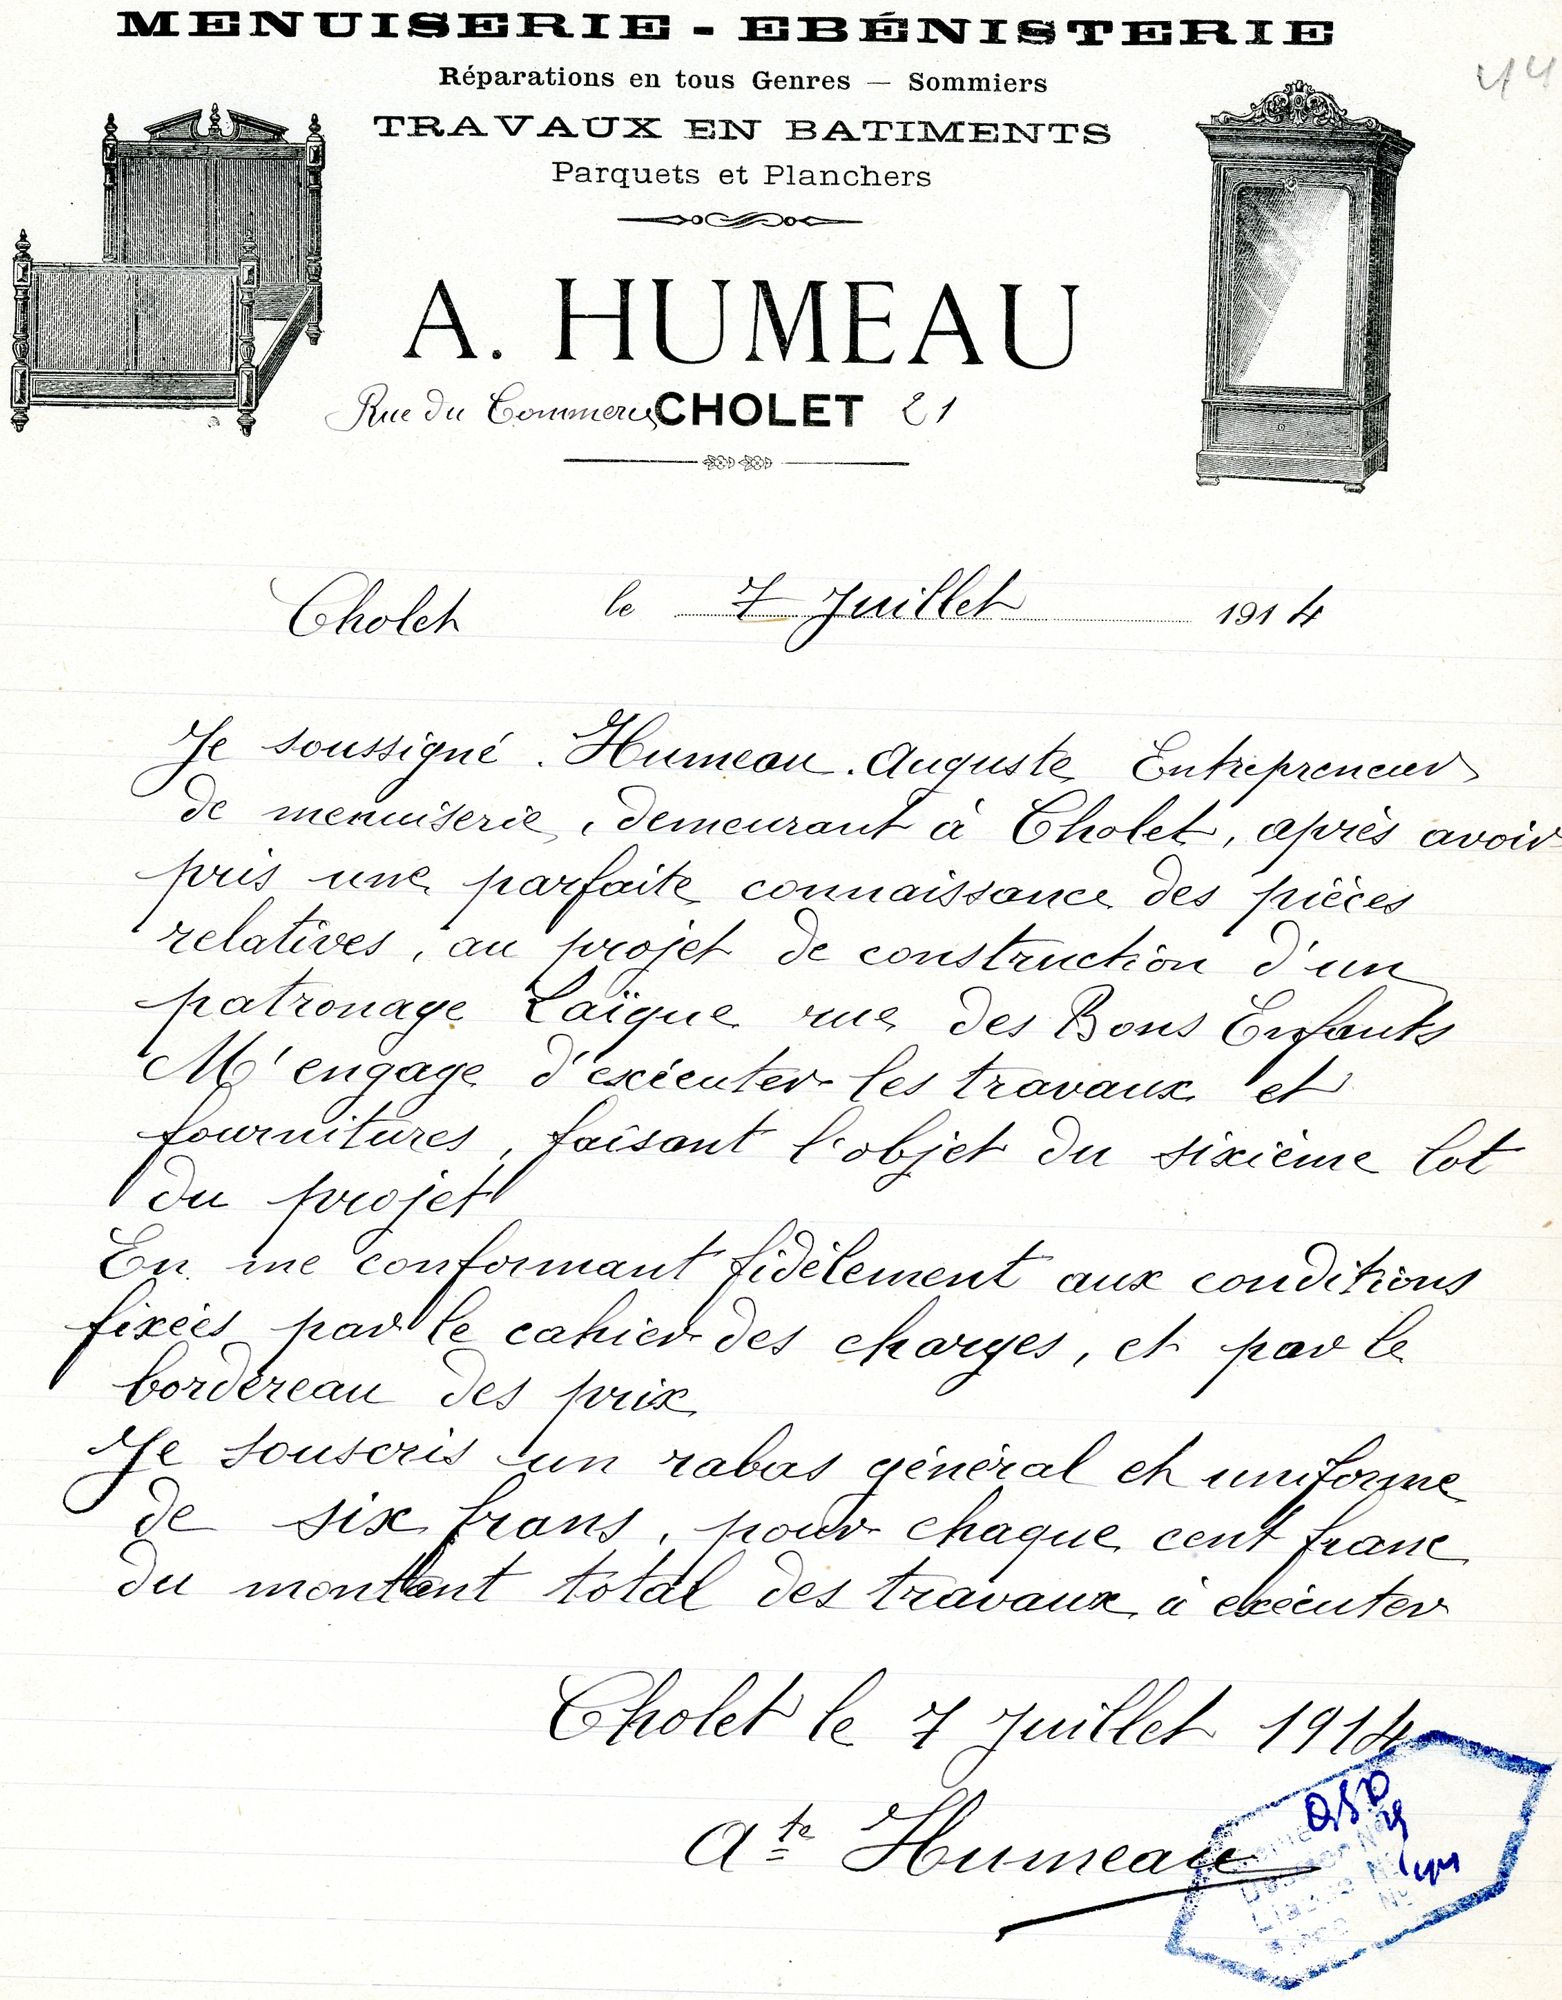 MENUISERIE - EBÉNISTERIE
44
Réparations en tous Genres — Sommiers
TRAVAUX EN BATIMENTS
Parquets et Planchers
A. HUMEAU
Rue du Commerce CHOLET 21
Cholet le 7 Juillet 1914
Je soussigné . Humeau . Auguste Entrepreneur
de menuiserie, demeurant à Cholet, après avoir
pris une parfaite connaissance des pièces
relatives, au projet de construction d'un
patronage Laïque rue des Bons Enfants
M'engage d'exécuter les travaux et
fournitures, faisant l'objet du sixième lot
du projet
En me conformant fidèlement aux conditions
fixées par le cahier des charges, et par le
bordereau des prix
Je souscris un rabas général et uniforme
de six frans, pour chaque cent franc
du montant total des travaux à exécuter
Cholet le 7 Juillet 1914
Ate Humeau
Dossier N°
Liasse N°
N°